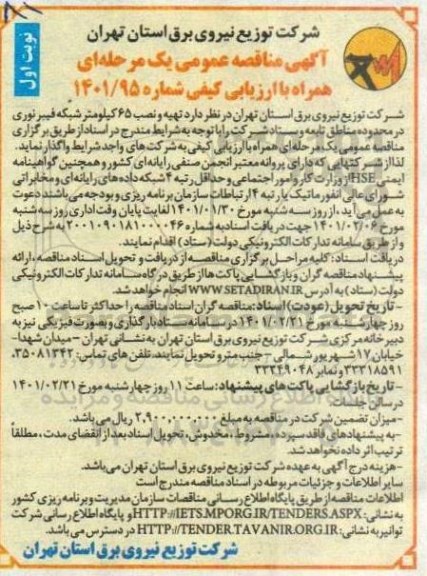 شرکت توزیع نیروی برق استان تهران
آگهی مناقصه عمومی یک مرحله‌ای
همراه با ارزیابی کیفی شماره ۱۴۰۱/۹۵
نوبت اول
شرکت توزیع نیروی برق استان تهران در نظر دارد تهیه و نصب ۶۵ کیلومتر شبکه فیبر نوری
در محدوده مناطق تابعه و ستاد شرکت را با توجه به شرایط مندرج در اسناد از طریق برگزاری
مناقصه عمومی یک مرحله‌ای همراه با ارزیابی کیفی به شرکت های واجد شرایط واگذار نماید.
لذا از شرکتهایی که دارای پروانه معتبر انجمن صنفی رایانه‌ای کشور و همچنین گواهینامه
ایمنی HSE از وزارت کار و امور اجتماعی و حداقل رتبه ۴ شبکه داده‌های رایانه‌ای و مخابراتی
شورای عالی انفورماتیک یا رتبه ۴ ارتباطات سازمان برنامه ریزی و بودجه می‌باشند دعوت
به عمل می‌آید، از روز سه شنبه مورخ ۱۴۰۱/۰۱/۳۰ لغایت پایان وقت اداری روز سه شنبه
مورخ ۱۴۰۱/۰۲/۰۶ جهت دریافت اسناد به شماره ۲۰۰۱۰۹۰۱۸۱۰۰۰۰۴۶ به شرح ذیل
و از طریق سامانه تدارکات الکترونیکی دولت (ستاد) اقدام نمایند.
دریافت اسناد: کلیه مراحل برگزاری مناقصه از دریافت و تحویل اسناد مناقصه، ارائه
پیشنهاد مناقصه گران و بازگشایی پاکت ها از طریق درگاه سامانه تدارکات الکترونیکی
دولت (ستاد) به آدرس WWW.SETADIRAN.IR انجام خواهد شد.
-تاریخ تحویل (عودت) اسناد: مناقصه گران اسناد مناقصه را حداکثر تا ساعت ۱۰ صبح
روز چهارشنبه مورخ ۱۴۰۱/۰۲/۲۱ در سامانه ستاد بارگذاری و بصورت فیزیکی نیز به
دبیرخانه مرکزی شرکت توزیع نیروی برق استان تهران به نشانی تهران - میدان شهدا-
خیابان ۱۷ شهریور شمالی - جنب مترو تحویل نمایند. تلفن های تماس: ۳۵۰۸۱۳۴۲،
۳۳۳۱۸۵۹۱ و نمابر ۳۳۳۴۹۰۴۸
-تاریخ بازگشایی پاکت های پیشنهاد: ساعت ۱۱ روز چهارشنبه مورخ ۱۴۰۱/۰۲/۲۱
در سالن جلسات
-میزان تضمین شرکت در مناقصه به مبلغ ۲,۹۰۰,۰۰۰,۰۰۰ ریال می باشد.
-به پیشنهادهای فاقد سپرده، مشروط، مخدوش، تحویل اسناد بعد از انقضای مدت، مطلقاً
ترتیب اثر داده نخواهد شد.
-هزینه درج آگهی به عهده شرکت توزیع نیروی برق استان تهران می‌باشد.
سایر اطلاعات و جزئیات مربوطه در اسناد مناقصه مندرج است
اطلاعات مناقصه از طریق پایگاه اطلاع رسانی مناقصات سازمان مدیریت و برنامه ریزی کشور
به نشانی: HTTP://IETS.MPORG.IR/TENDERS.ASPX و پایگاه اطلاع رسانی شرکت
توانیر به نشانی: HTTP://TENDER.TAVANIR.ORG.IR در دسترس می باشد.
شرکت توزیع نیروی برق استان تهران